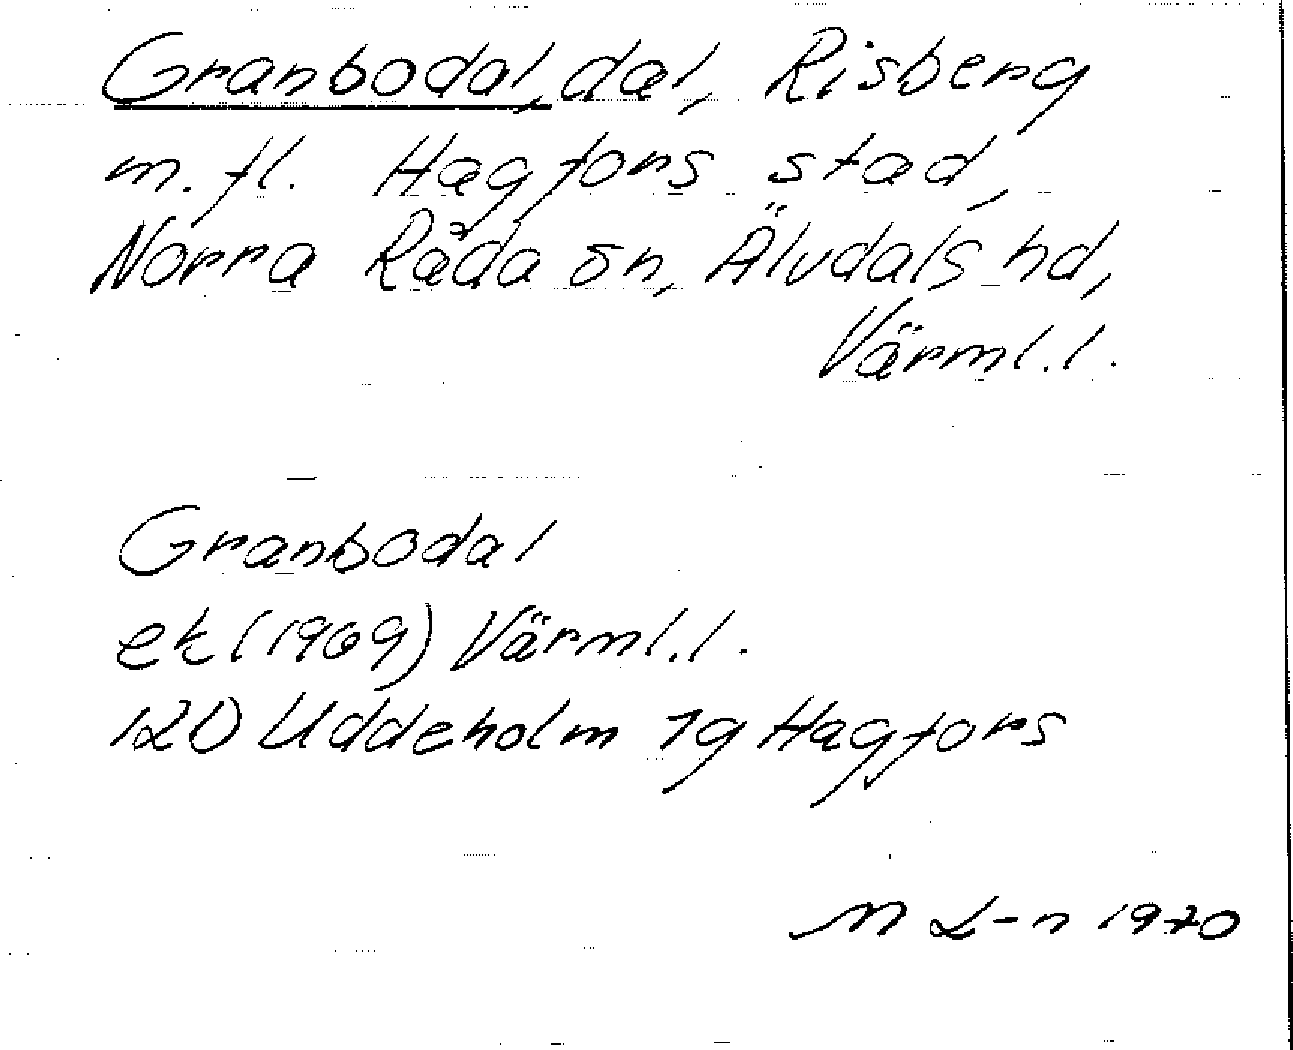 Granbodal, dal, Risberg
m. fl. Hagfors stad,
Norra Råda sn, Älvdals hd,
Värml. l.
Granbodal
ek (1969) Värml. l.
12D Uddeholm 7g Hagfors
M L-n 1970